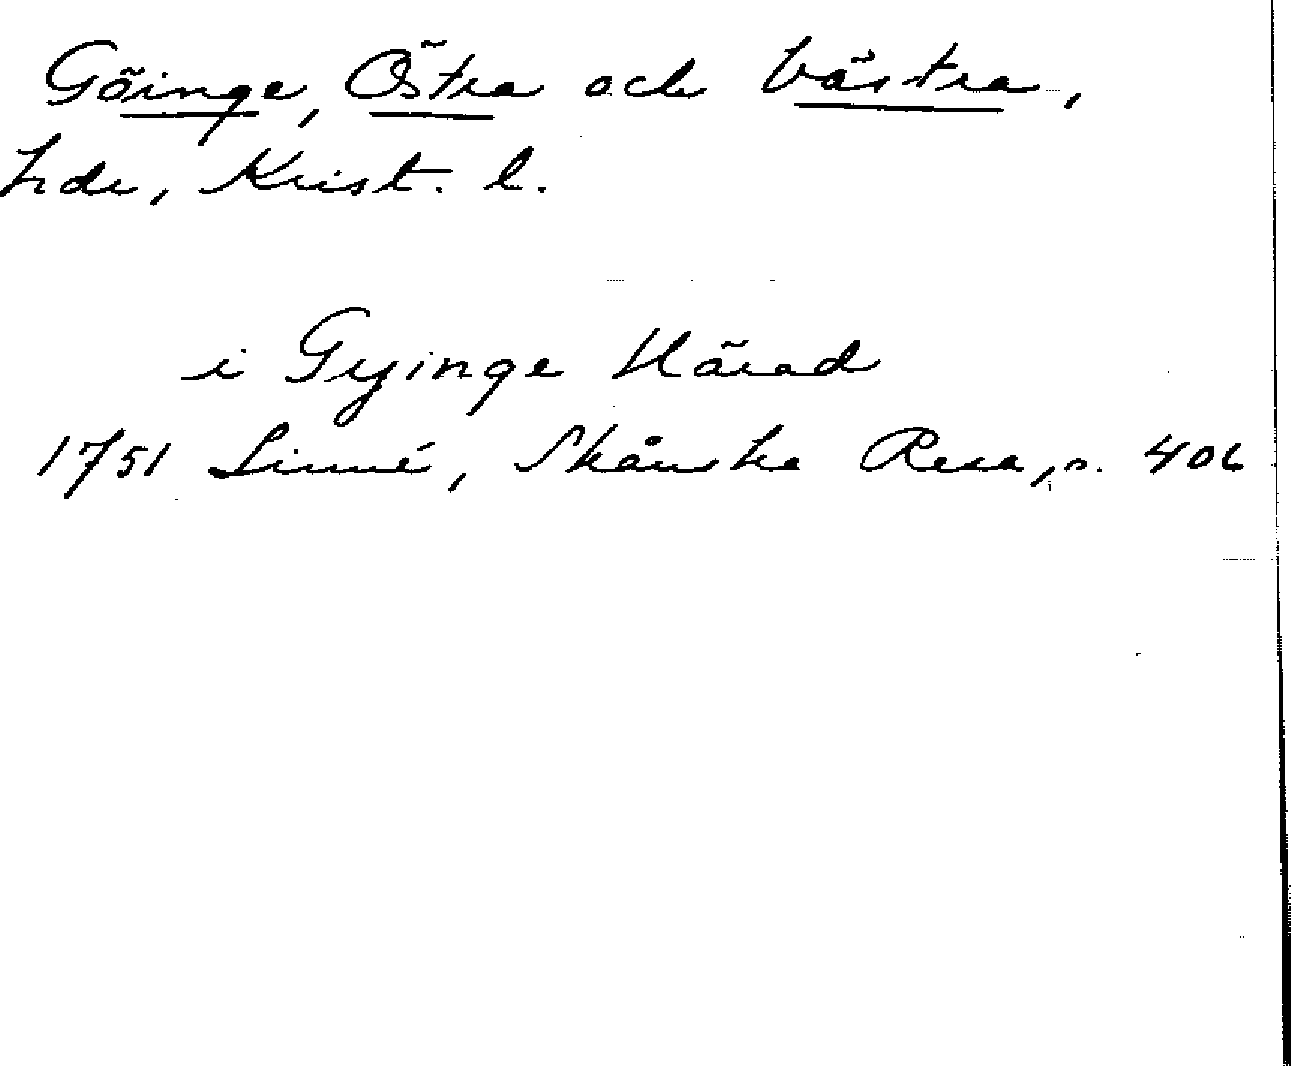 Göinge, Östra och Västra,
hdr, Krist. l.
i Gyinge Härad
1751 Linné, Skånska Resa, s. 406